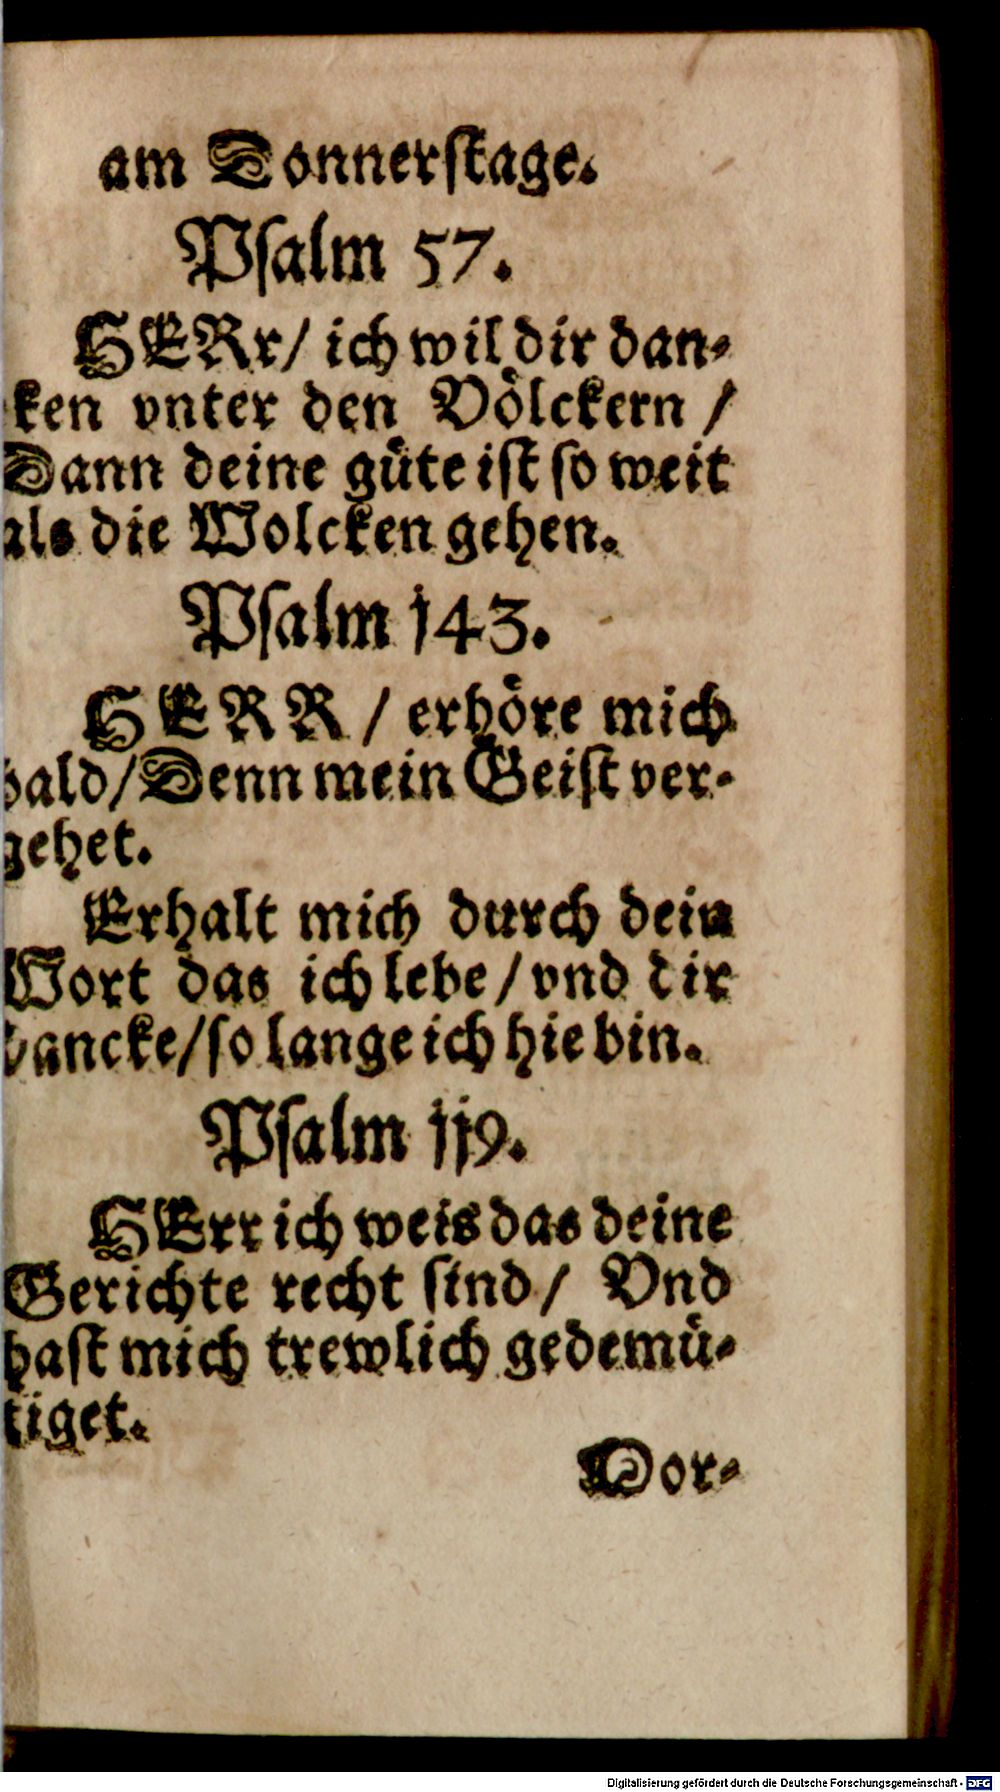 am Donnerſtage.
Pſalm 57.
HERr/ ich wil dir dan-
ken vnter den Völckern /
Dann deine güte iſt ſo weit
als die Wolcken gehen.
Pſalm 143.
HERR / erhöre mich
bald/ Denn mein Geiſt ver-
gehet.
Erhalt mich durch dein
Wort das ich lebe / vnd dir
dancke/ ſo lange ich hie bin.
Pſalm 119.
HErr ich weis das deine
Gerichte recht ſind/ Vnd
haſt mich trewlich gedemü-
tiget.
Dor-
Digitalisierung gefördert durch die Deutsche Forschungsgemeinschaft - DFG